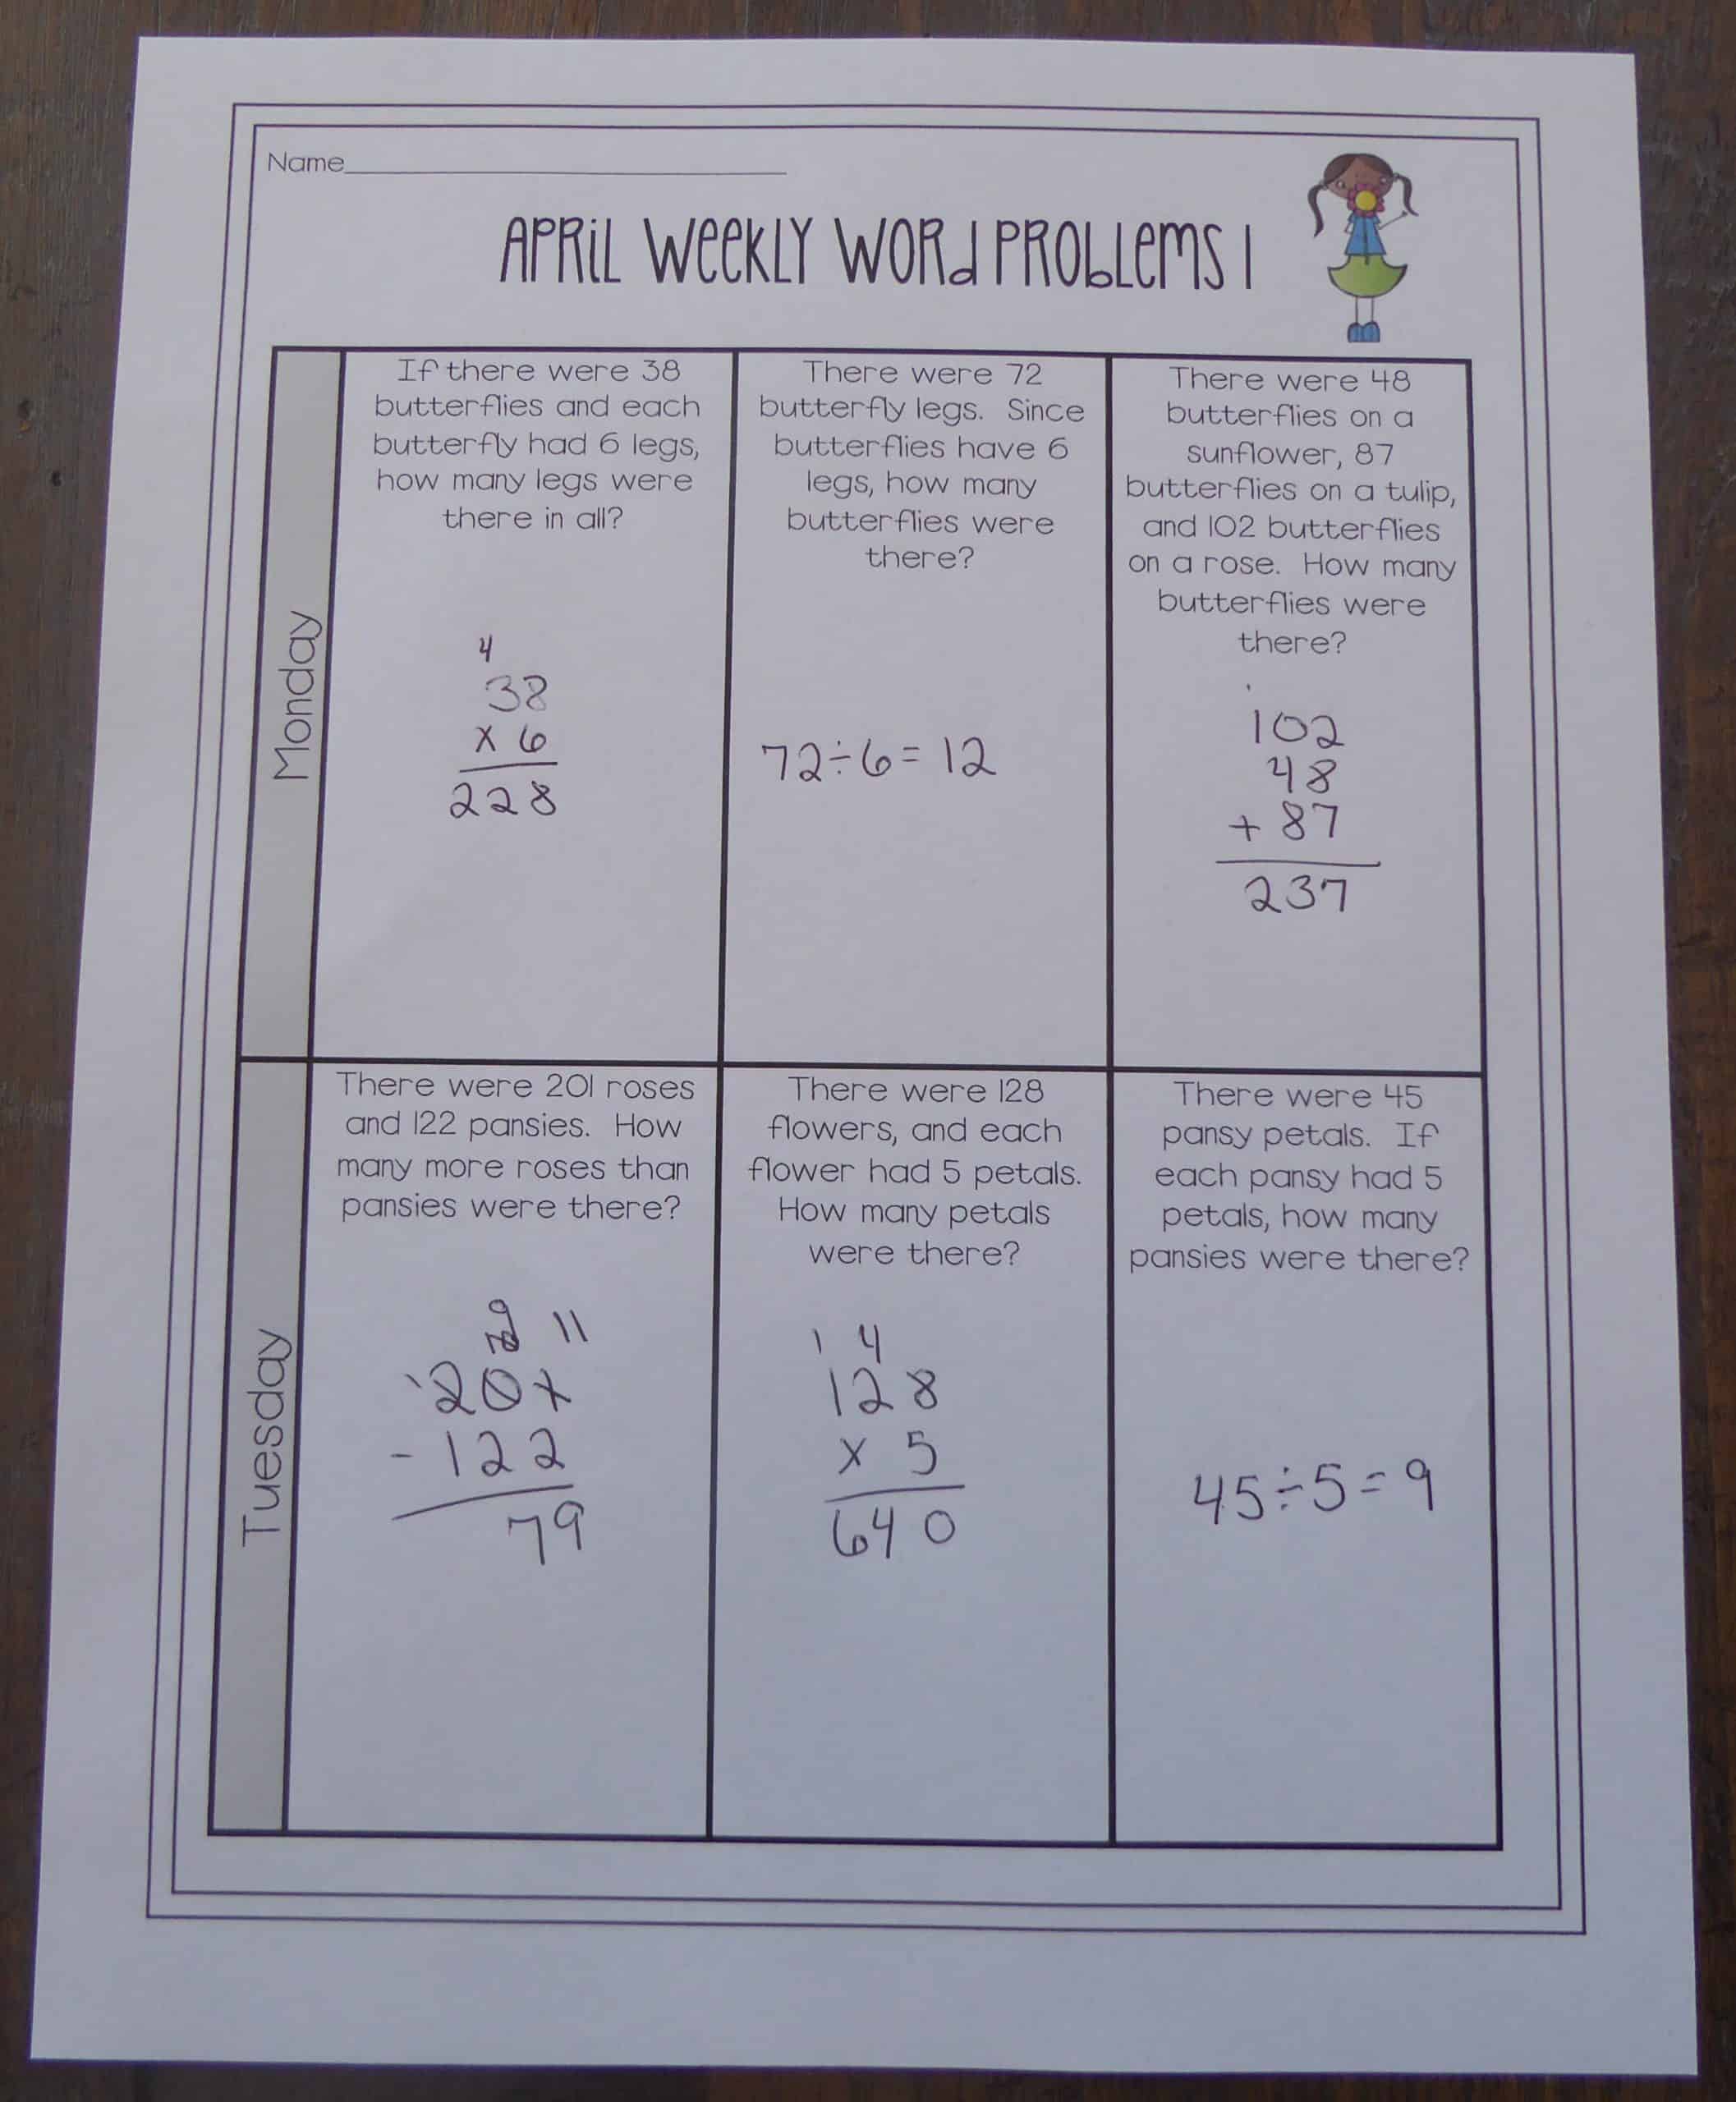 Name
APRIL WEEKLY WORD PROBLEMS 1
Monday
If there were 38
butterflies and each
butterfly had 6 legs,
how many legs were
there in all?
4
38
x 6
228
There were 72
butterfly legs. Since
butterflies have 6
legs, how many
butterflies were
there?
72÷6=12
There were 48
butterflies on a
sunflower, 87
butterflies on a tulip,
and 102 butterflies
on a rose. How many
butterflies were
there?
102
48
+ 87
237
Tuesday
There were 201 roses
and 122 pansies. How
many more roses than
pansies were there?
9
10 11
201
- 122
79
There were 128
flowers, and each
flower had 5 petals.
How many petals
were there?
1 4
128
x 5
640
There were 45
pansy petals. If
each pansy had 5
petals, how many
pansies were there?
45÷5=9